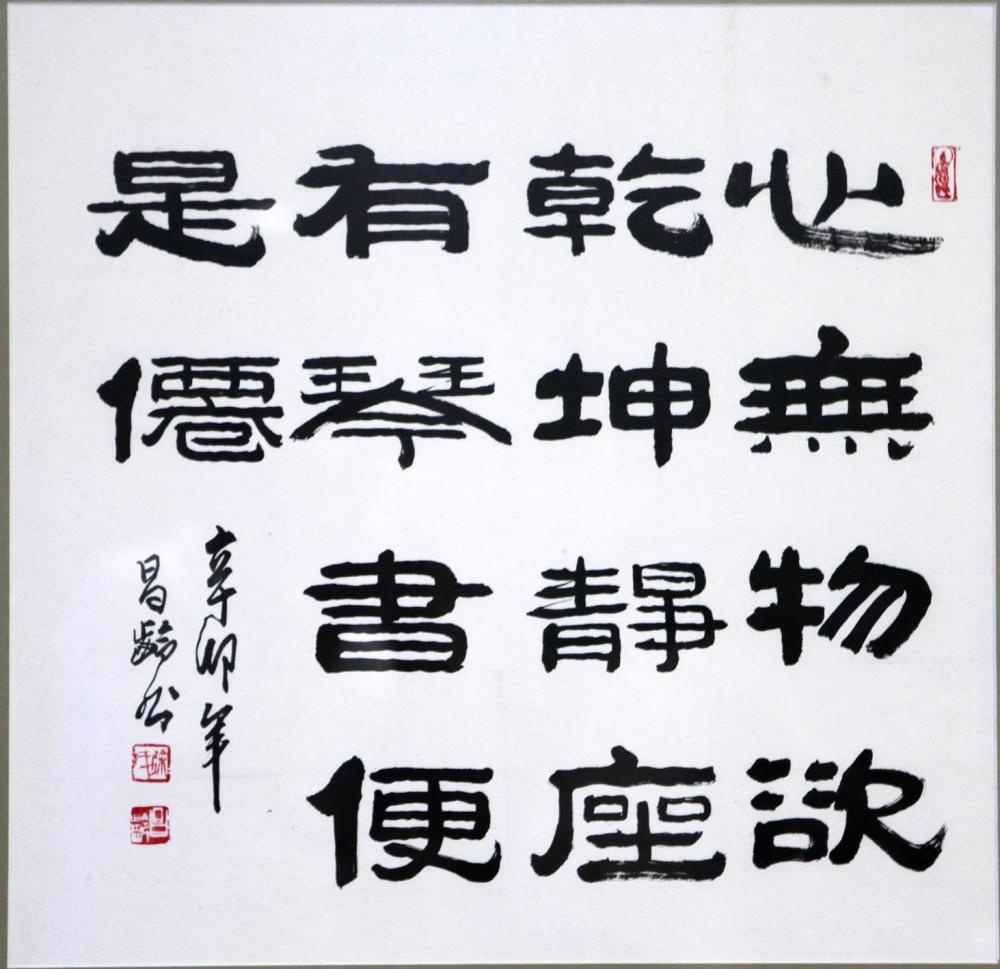 心無物欲
乾坤靜座
有琴書便
是僊
辛卯年
昌齡书